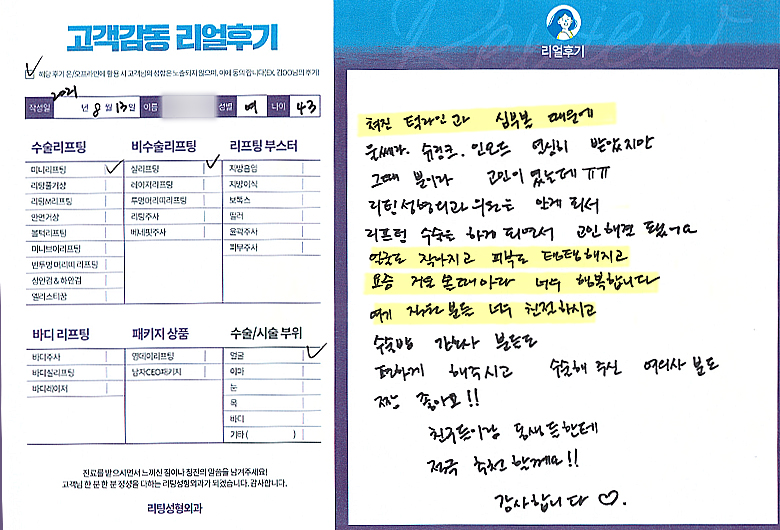 고객감동 리얼후기
해당 후기 온/오프라인에 활용 시 고객님의 성함은 노출되지 않으며, 이에 동의 합니다(EX. 김OO님의 후기)
작성일 2021 년 8 월 13 일 이름 성별 여 나이 43
수술리프팅
미니리프팅
리팅풀거상
리팅M리프팅
안면거상
볼턱리프팅
미니브이리프팅
반투명 머리띠 리프팅
상안검 & 하안검
엘라스티꿈
비수술리프팅
실리프팅
레이저리프팅
투명머리띠리프팅
리팅주사
베네핏주사
리프팅 부스터
지방흡입
지방이식
보톡스
필러
윤곽주사
피부주사
바디 리프팅
바디주사
바디실리프팅
바디레이저
패키지 상품
원데이리프팅
남자CEO패키지
수술/시술 부위
얼굴
이마
눈
목
바디
기타 ( )
진료를 받으시면서 느끼신 점이나 칭찬의 말씀을 남겨주세요!
고객님 한 분 한 분 정성을 다하는 리팅성형외과가 되겠습니다. 감사합니다.
리팅성형외과
Review
리얼후기
쳐진 턱라인과 심부볼 때문에
울쎄라. 슈링크. 인모드 열심히 받았지만
그때 뿐이라 고민이 였는데 ㅠㅠ
리팅성형외과 위원을 알게 되서
리프팅 수술을 하게 되면서 고민 해결 됐어요
얼굴도 작아지고 피부도 탱탱해지고
요즘 거울 볼때마다 너무 행복합니다
여기 직원 분들 너무 친절하시고
수술방 간호사 분들도
편하게 해주시고 수술해 주신 여의사 분도
짱 좋아요!!
친구들이랑 동생들한테
적극 추천 할께요!!
감사합니다 ♡.